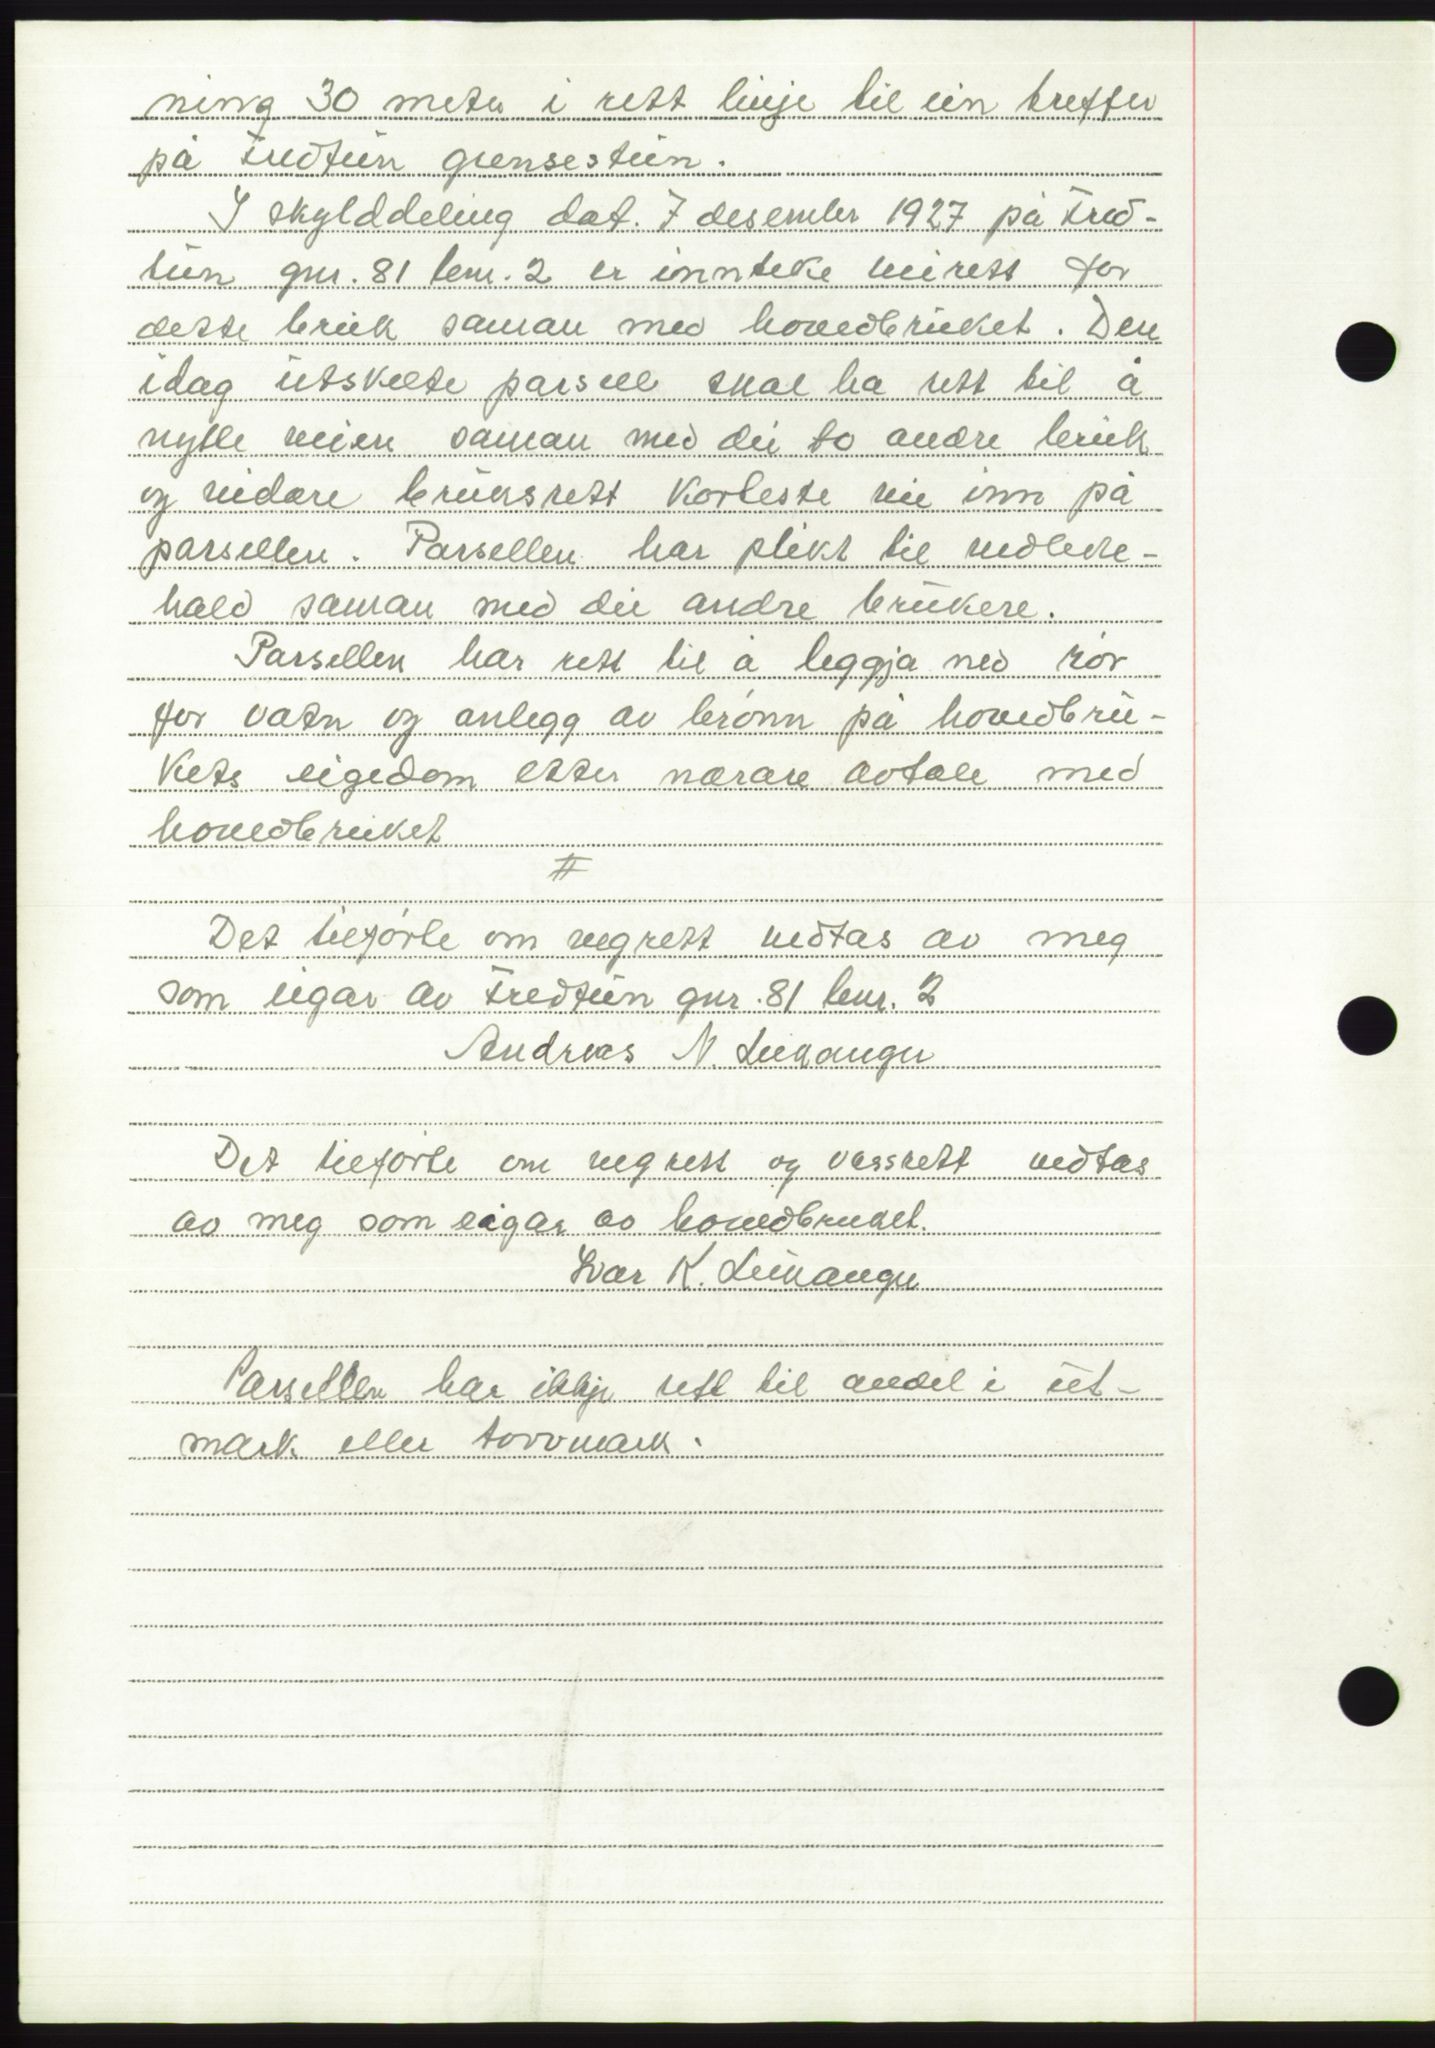 ning 30 meter i rett linje til ein treffer
på Fredtun grensestein.
I skylddeling dat. 7 desember 1927 på Fred-
tun gnr. 81 bnr. 2 er innteke veirett for
dette bruk saman med hovedbruket. Den
idag utskilte parsell skal ha rett til å
nytte veien saman med dei to andre bruk
og vidare bruksrett korteste vei inn på
parsellen. Parsellen har plikt til vedlike-
hald saman med dei andre brukere.
Parsellen har rett til å leggja ned rör
for vatn og anlegg av brönn på hovedbru-
kets eigedom etter nærare avtale med
hovedbruket
#
Det tilförte om vegrett vedtas av meg
som eigar av Fredtun gnr. 81 bnr. 2
Andreas N. Leikanger
Det tilförte om vegrett og vassrett vedtas
av meg som eigar av hovedbruket.
Ivar K. Leikanger
Parsellen har ikkje rett til andel i ut-
mark eller torvmark.